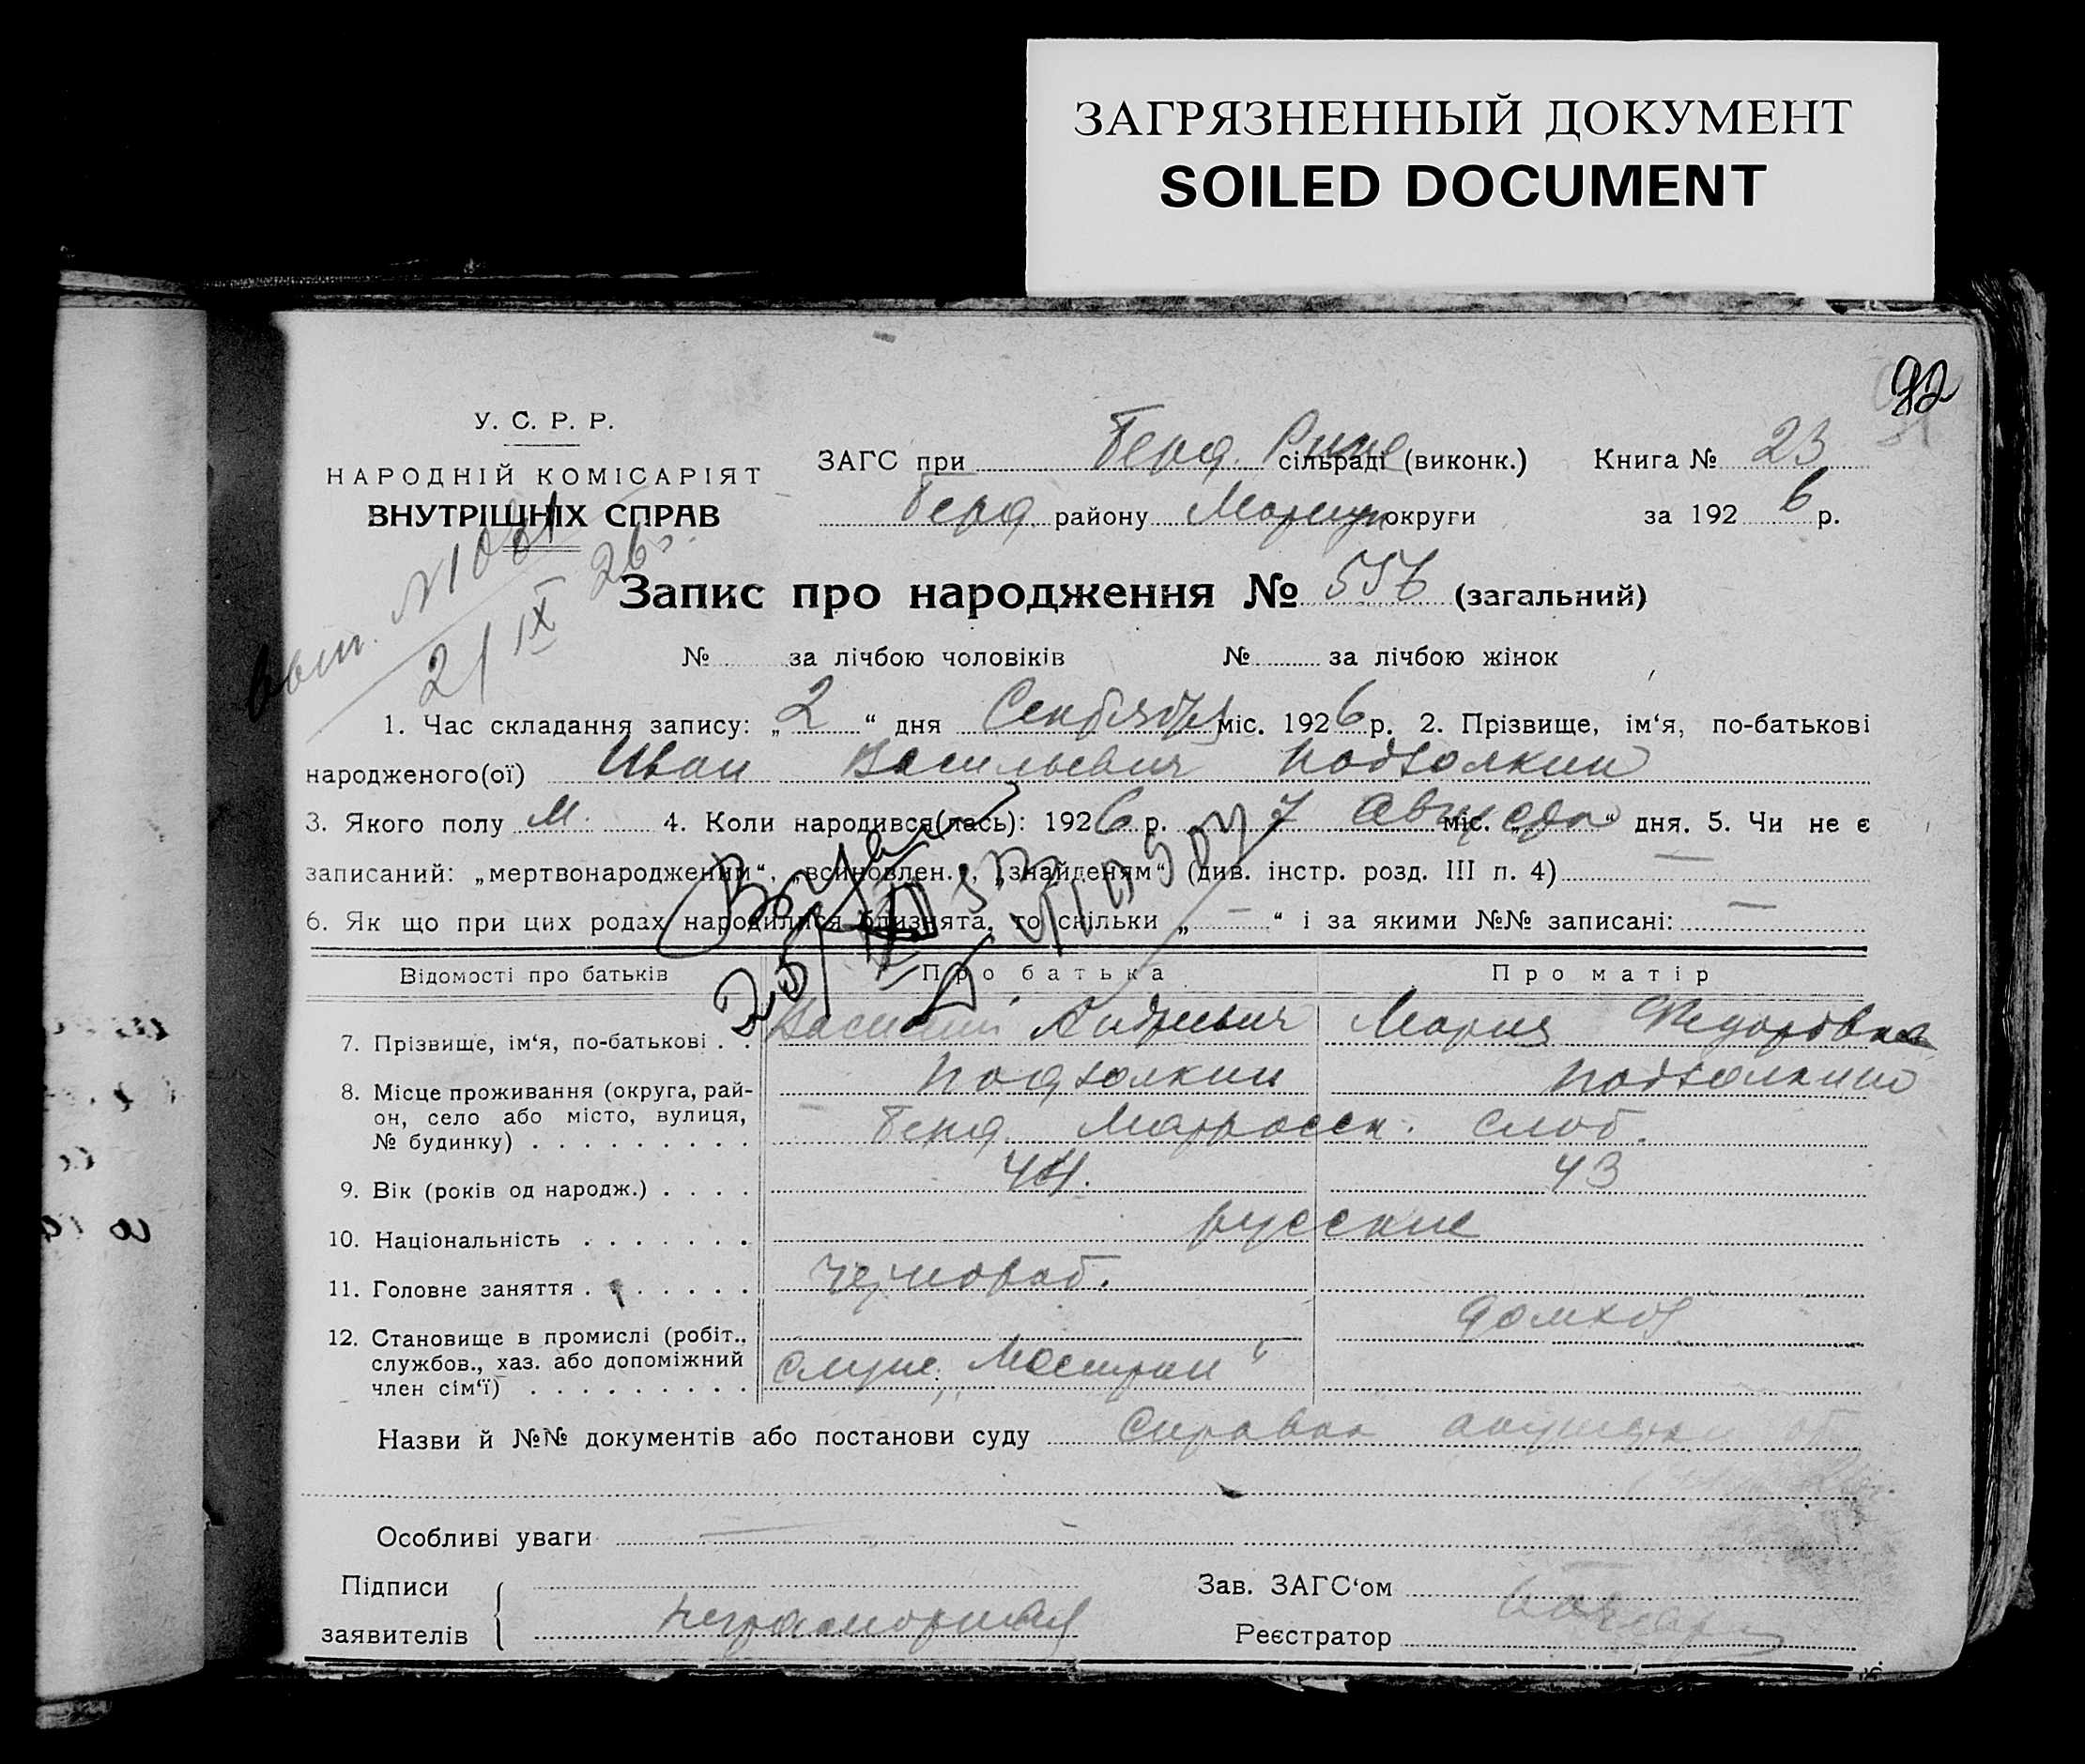 ЗАГРЯЗНЕННЫЙ ДОКУМЕНТ
SOILED DOCUMENT
У. С. Р. Р.
НАРОДНІЙ КОМІСАРІЯТ
ВНУТРІШНІХ СПРАВ
ЗАГС при Берд. сільраді (виконк.) Книга № 23
Берд району Мариуп округи за 1926 р.
21 IX 26
Запис про народження № 556 (загальний)
№ за лічбою чоловіків № за лічбою жінок
1. Час складання запису: „2“ дня Сентября міс. 1926 р. 2. Прізвище, ім‘я, по-батькові
народженого(ої) Иван Васильевич Подтолкин
3. Якого полу М. 4. Коли народився(лась): 1926 р. 7 Августа міс. „ “ дня. 5. Чи не є
записаний: „мертвонароджений“, „всиновлен.“, „знайденям“ (див. інстр. розд. III п. 4) —
6. Як що при цих родах народилися близнята, то скільки „ — “ і за якими №№ записані: —
Відомості про батьків Про батька Про матір
7. Прізвище, ім‘я, по-батькові . . Василий Андреевич Мария Федоровна
Подтолкин Подтолкина
8. Місце проживання (округа, район, село або місто, вулиця,
№ будинку) . . . . . . . . . Берд. Матросск. слоб.
9. Вік (років од народж.) . . . . 44. 43
10. Національність . . . . . . . русские
11. Головне заняття . . . . . . . чернораб.
домхоз
12. Становище в промислі (робіт.,
службов., хаз. або допоміжний
член сім‘ї) . . . . . . . . .
Назви й №№ документів або постанови суду Справка акушерки
Особливі уваги —
Підписи
заявителів неграмотная
Зав. ЗАГС‘ом
Реєстратор